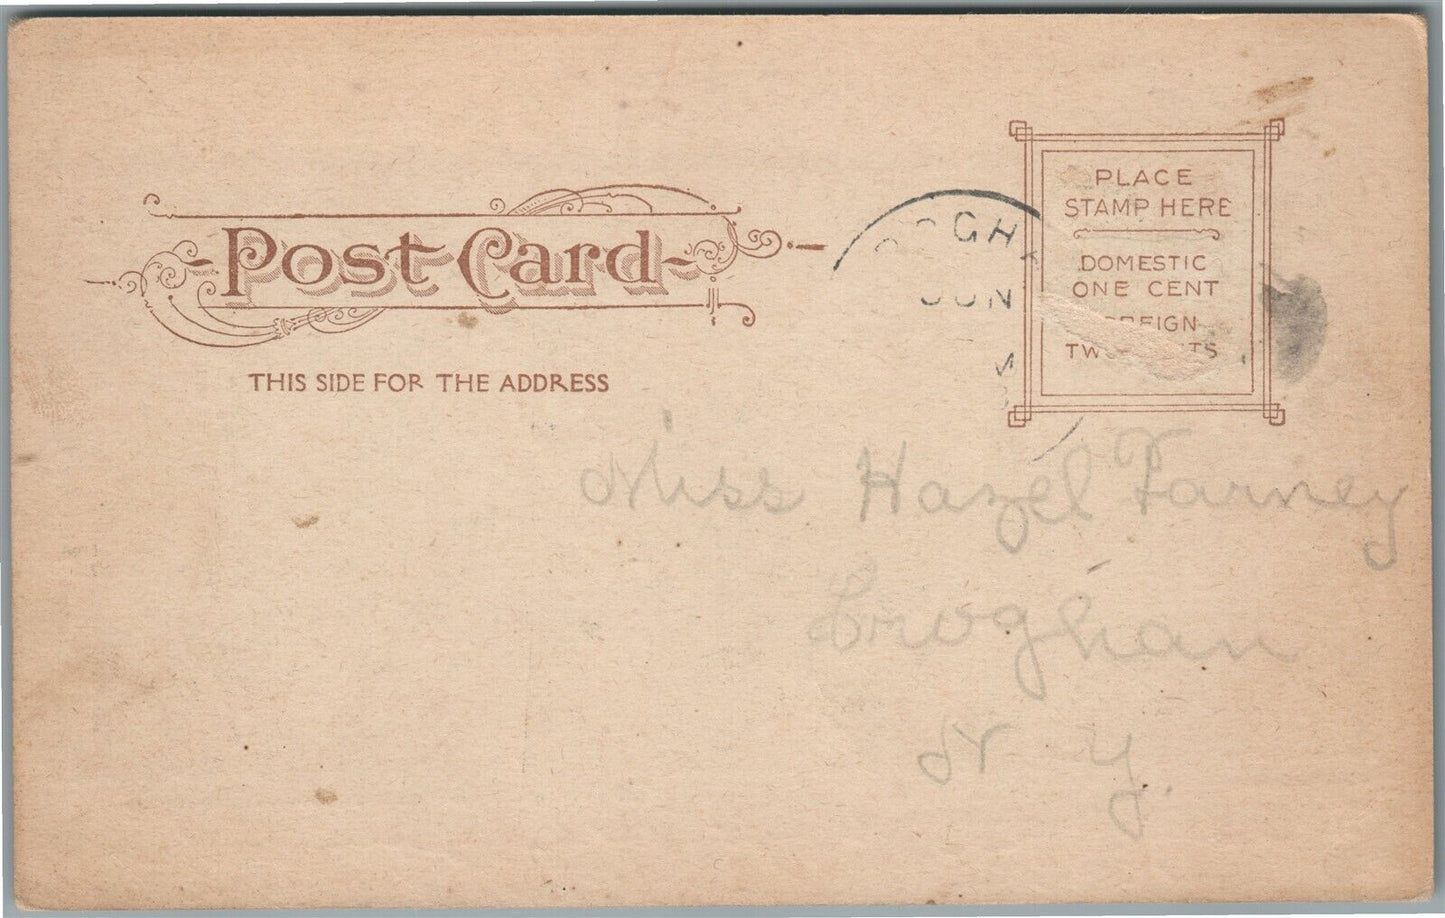 POST CARD
THIS SIDE FOR THE ADDRESS
PLACE
STAMP HERE
DOMESTIC
ONE CENT
TWO
JUN
Miss Hazel Farney
Croghan
N Y.